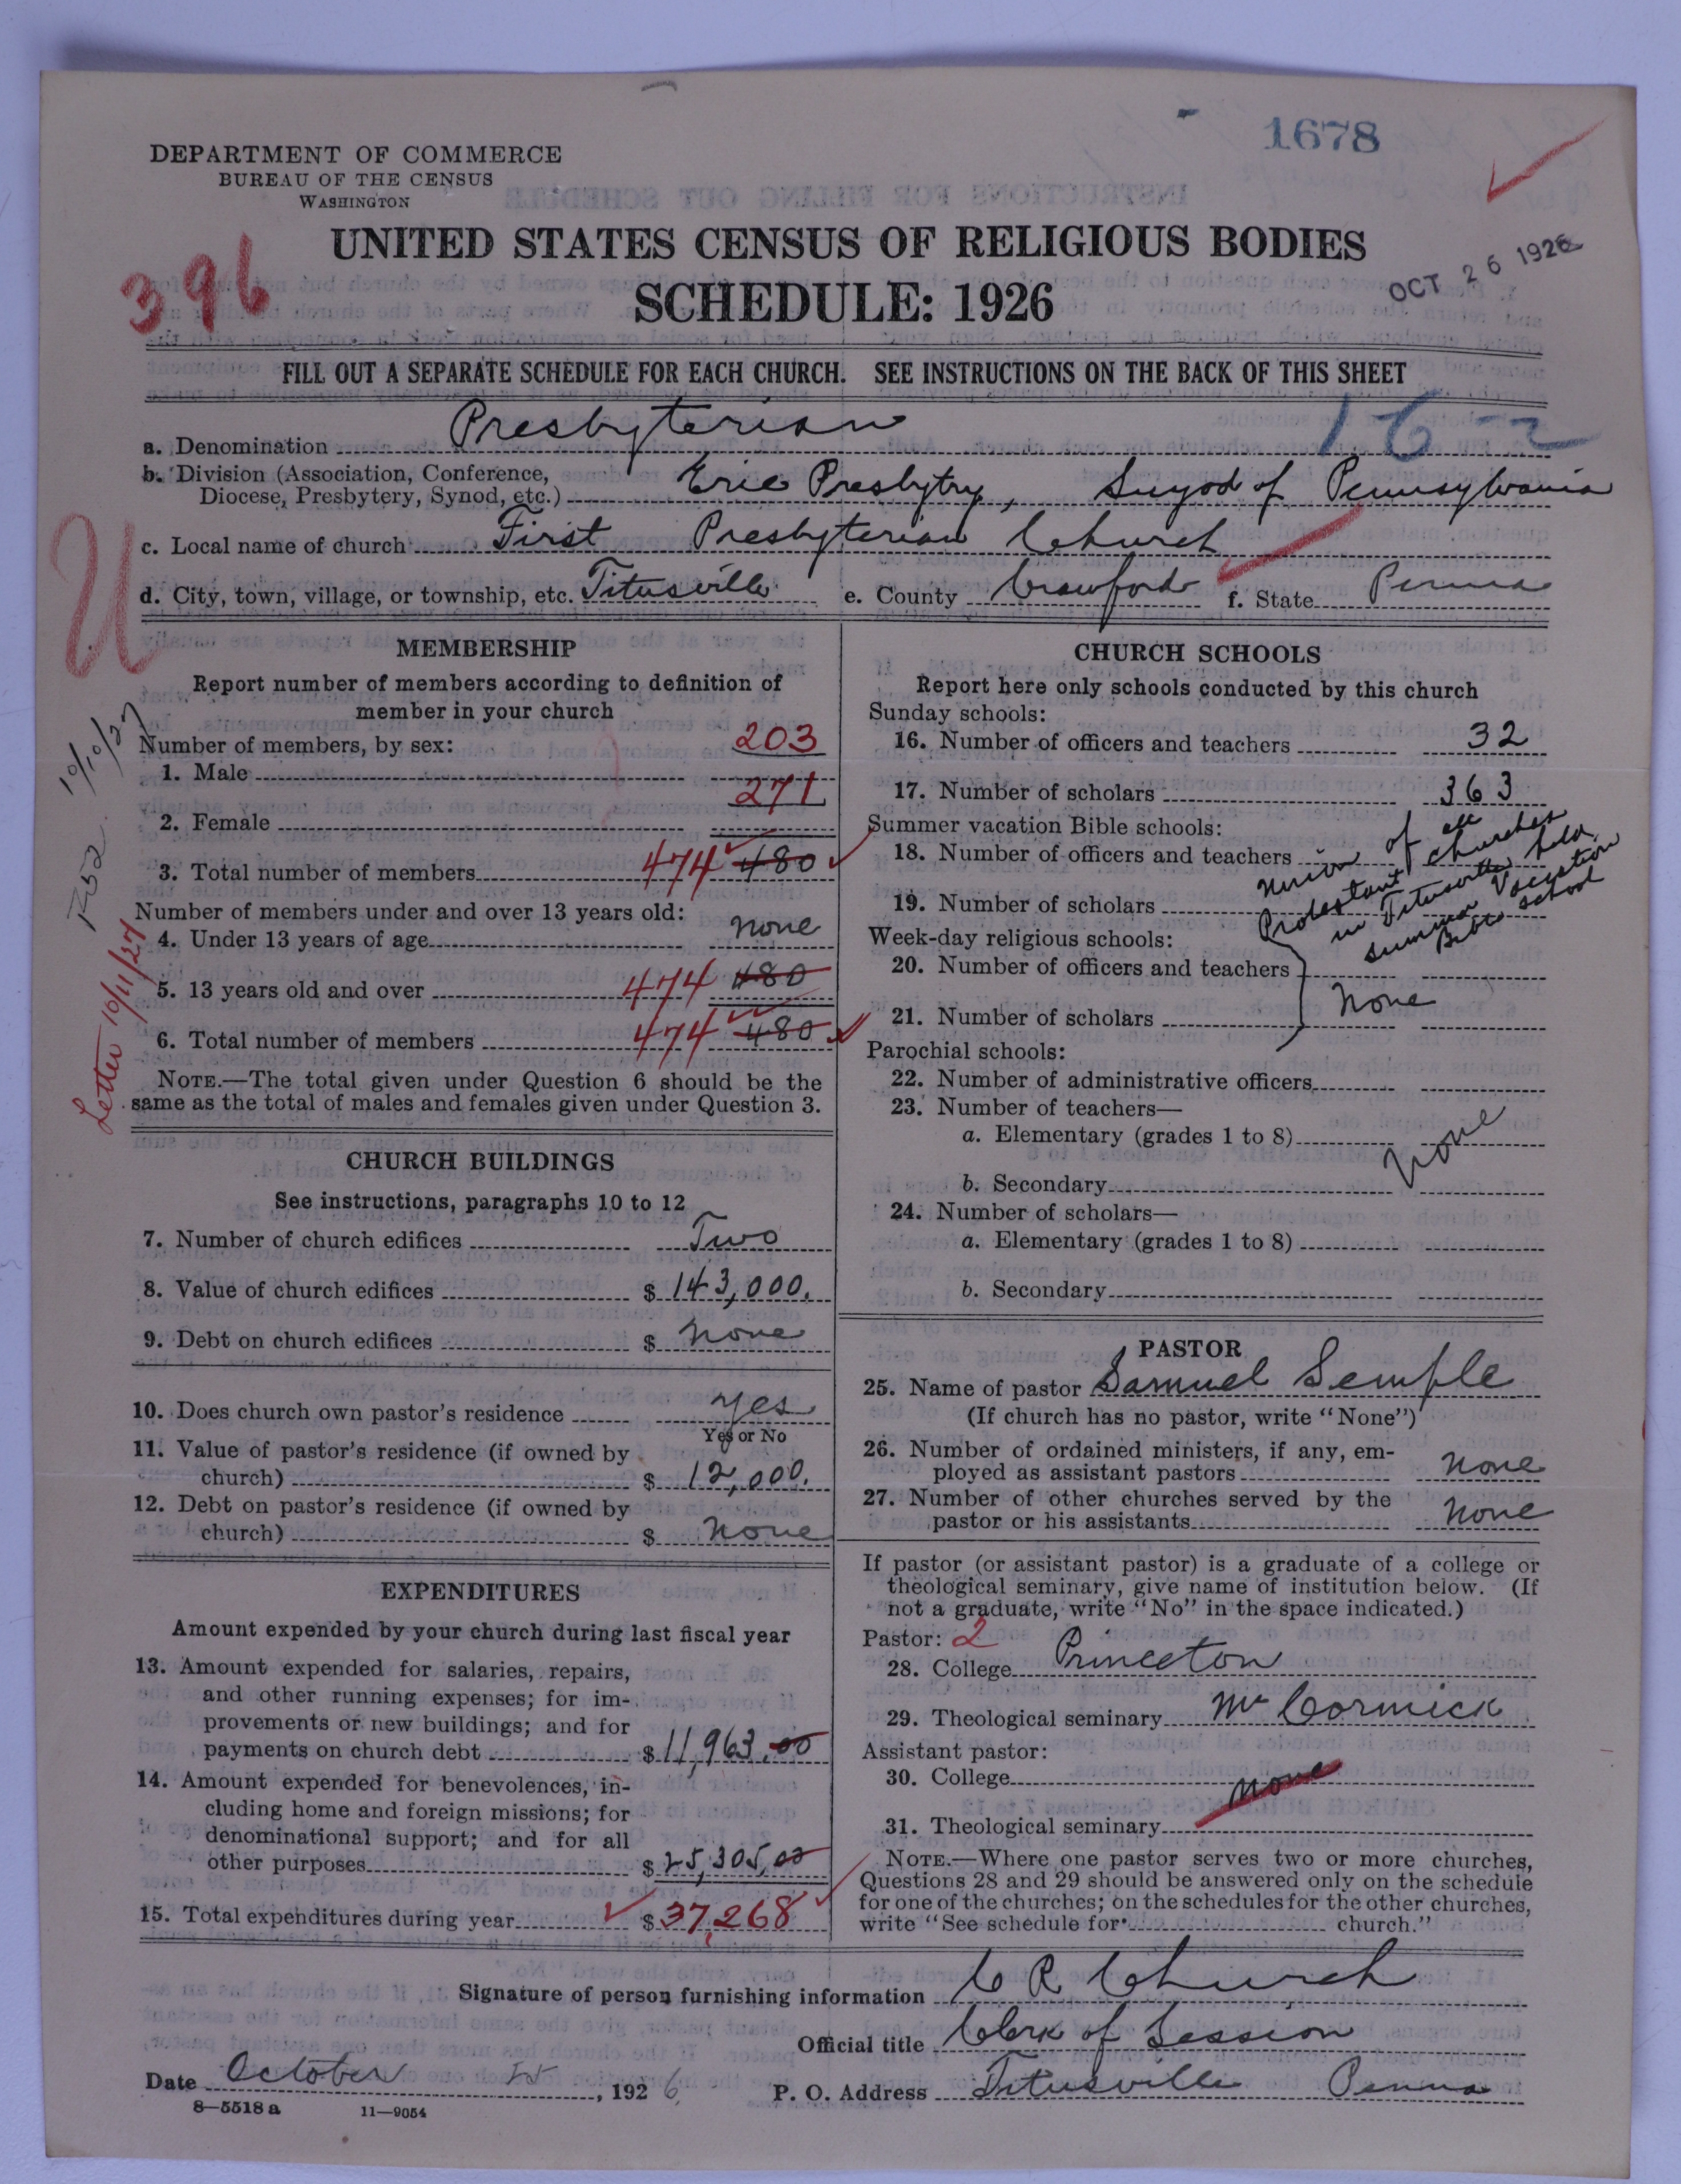 1678
DEPARTMENT OF COMMERCE
BUREAU OF THE CENSUS
WASHINGTON
UNITED STATES CENSUS OF RELIGIOUS BODIES
SCHEDULE: 1926
396
OCT 26 1926
FILL OUT A SEPARATE SCHEDULE FOR EACH CHURCH. SEE INSTRUCTIONS ON THE BACK OF THIS SHEET
16-2
a. Denomination Presbyterian
b. Division (Association, Conference,
Diocese, Presbytery, Synod, etc.) Erie Presbytry, Synod of Pennsylvania
c. Local name of church First Presbyterian Church
d. City, town, village, or township, etc. Titusville e. County Crawford f. State Penna
U
10/10/27
Letter 10/11/27
MEMBERSHIP
Report number of members according to definition of
member in your church
Number of members, by sex:
1. Male 203
2. Female 271
3. Total number of members 474 480
Number of members under and over 13 years old:
4. Under 13 years of age none
5. 13 years old and over 474 480
6. Total number of members 474 480
NOTE.—The total given under Question 6 should be the
same as the total of males and females given under Question 3.
CHURCH BUILDINGS
See instructions, paragraphs 10 to 12
7. Number of church edifices Two
8. Value of church edifices $ 143,000.
9. Debt on church edifices $ none
10. Does church own pastor's residence yes
Yes or No
11. Value of pastor's residence (if owned by
church) $ 12,000.
12. Debt on pastor's residence (if owned by
church) $ none
EXPENDITURES
Amount expended by your church during last fiscal year
13. Amount expended for salaries, repairs,
and other running expenses; for im-
provements or new buildings; and for
payments on church debt $ 11,963.00
14. Amount expended for benevolences, in-
cluding home and foreign missions; for
denominational support; and for all
other purposes $ 25,305.00
15. Total expenditures during year $ 37,268
CHURCH SCHOOLS
Report here only schools conducted by this church
Sunday schools:
16. Number of officers and teachers 32
17. Number of scholars 363
Summer vacation Bible schools:
18. Number of officers and teachers
19. Number of scholars
union of all
Protestant churches
in Titusville held
summer Vacation
Bible school
Week-day religious schools:
20. Number of officers and teachers
21. Number of scholars
None
Parochial schools:
22. Number of administrative officers
23. Number of teachers—
a. Elementary (grades 1 to 8)
None
b. Secondary
24. Number of scholars—
a. Elementary (grades 1 to 8)
b. Secondary
PASTOR
25. Name of pastor Samuel Semple
(If church has no pastor, write "None")
26. Number of ordained ministers, if any, em-
ployed as assistant pastors none
27. Number of other churches served by the
pastor or his assistants none
If pastor (or assistant pastor) is a graduate of a college or
theological seminary, give name of institution below. (If
not a graduate, write "No" in the space indicated.)
Pastor: 2
28. College Princeton
29. Theological seminary McCormick
Assistant pastor:
30. College none
31. Theological seminary
NOTE.—Where one pastor serves two or more churches,
Questions 28 and 29 should be answered only on the schedule
for one of the churches; on the schedules for the other churches,
write "See schedule for church."
Signature of person furnishing information C R Church
Official title Clerk of Session
Date October 25, 1926 P. O. Address Titusville Penna
8—5518 a 11—9054